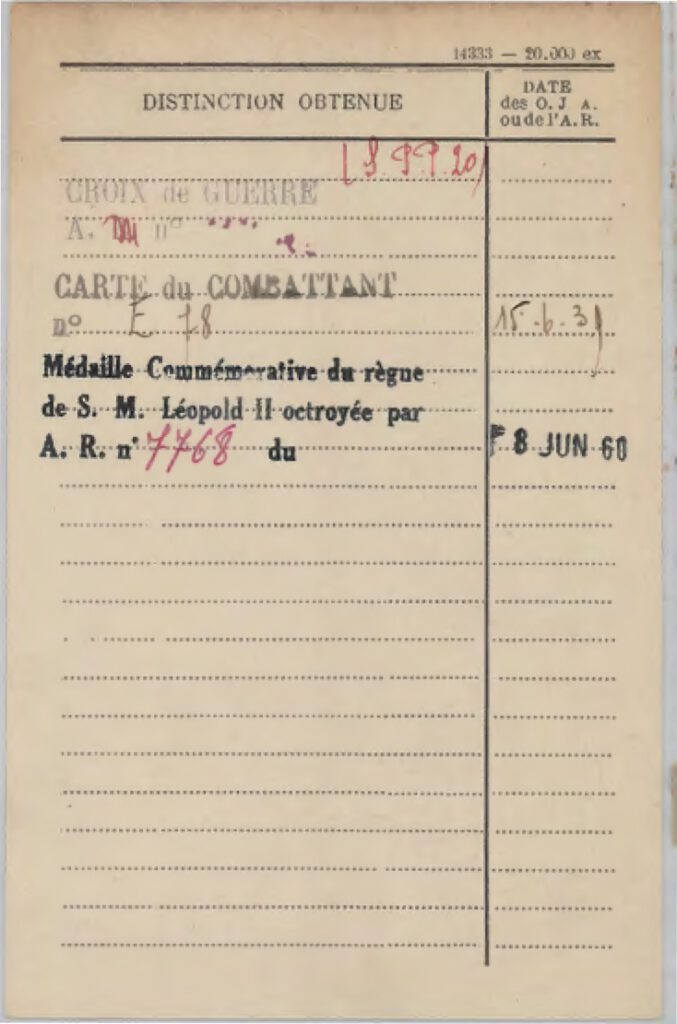 14333 — 20.000 ex
DISTINCTION OBTENUE
DATE
des O. J A.
ou de l'A. R.
(S. P. P. 20)
CROIX de GUERRE
A. n°
CARTE du COMBATTANT
n° E 78
15.6.31
Médaille Commémorative du règne
de S. M. Léopold II octroyée par
A. R. n° 7768 du
8 JUN 60